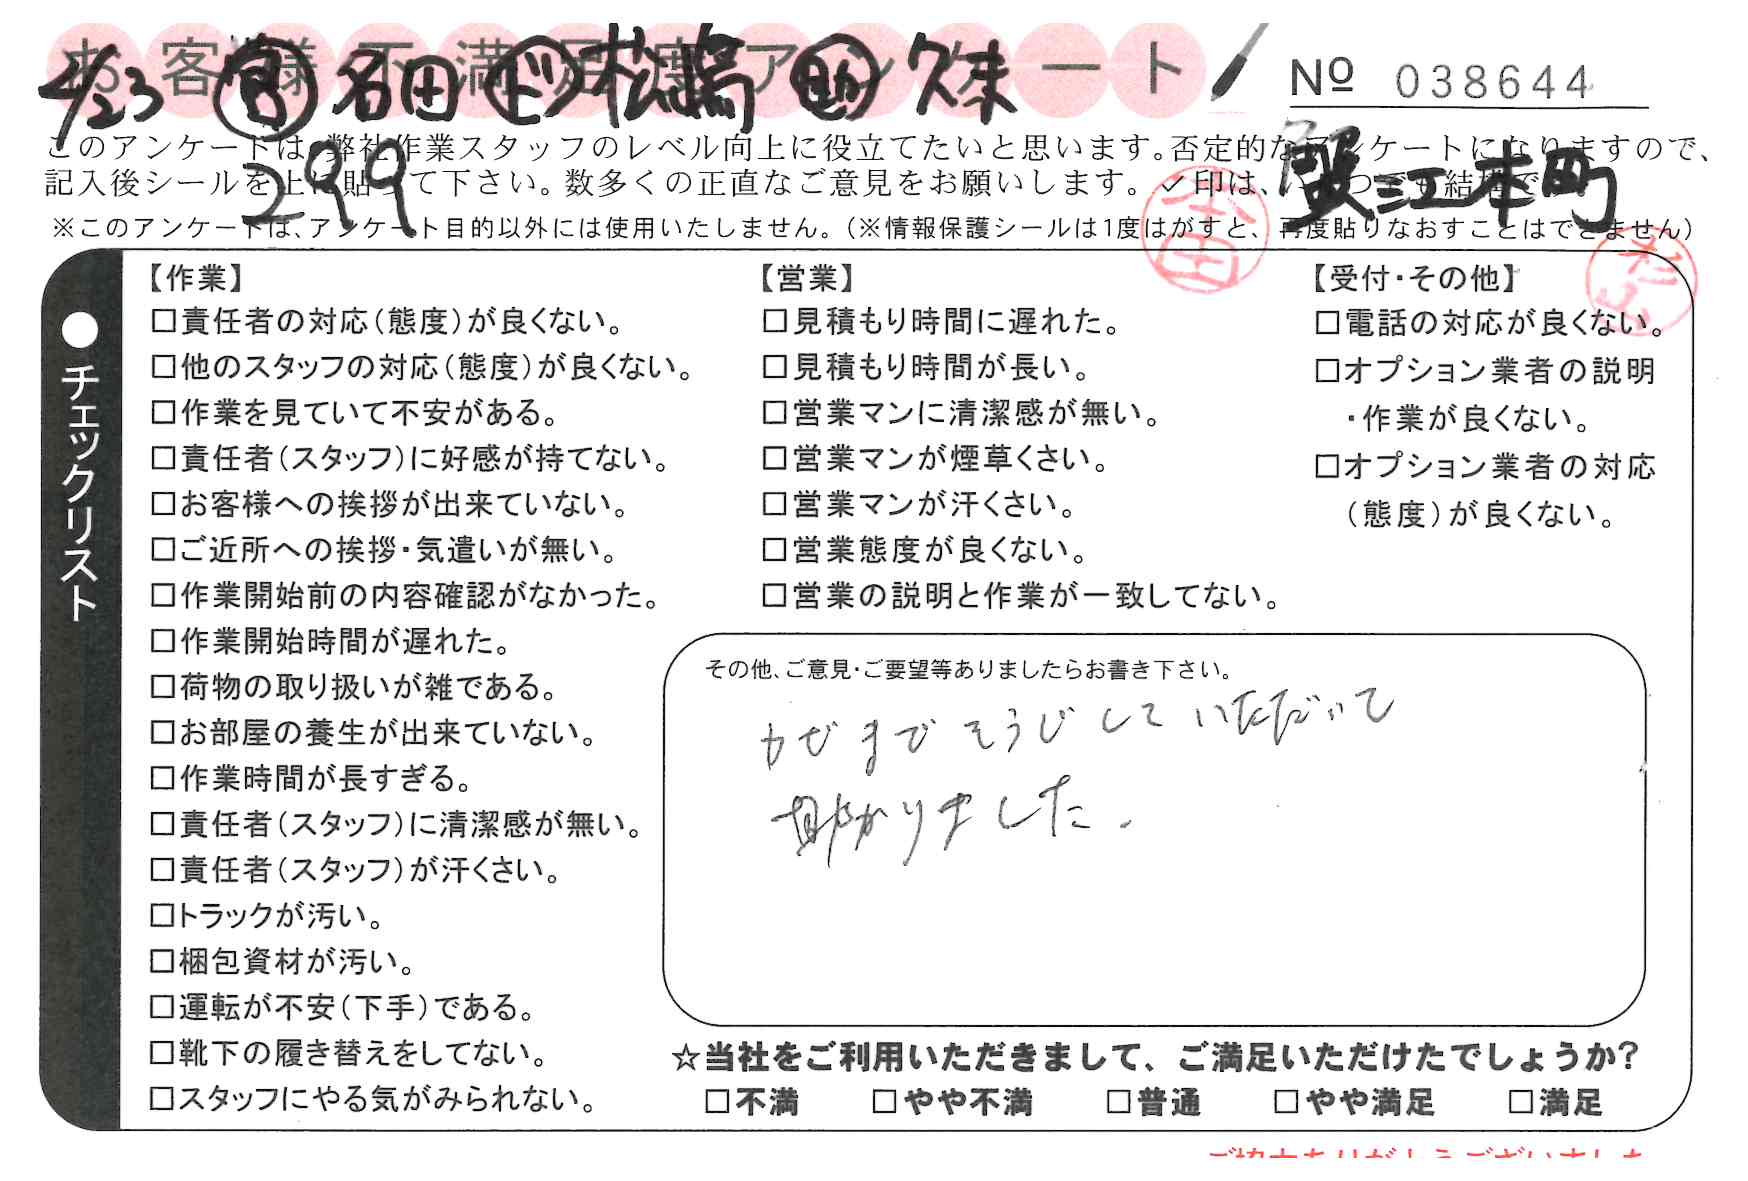 お客様不満足度アンケート
4/23 営 名田 ド 松嶋 助 久末
№ 038644
299
蟹江本町
このアンケートは、弊社作業スタッフのレベル向上に役立てたいと思います。否定的なアンケートになりますので、
記入後シールを上に貼って下さい。数多くの正直なご意見をお願いします。✓印は、いくつでも結構で
※このアンケートは、アンケート目的以外には使用いたしません。(※情報保護シールは1度はがすと、再度貼りなおすことはできません)
本田
杉山
●チェックリスト
【作業】
□責任者の対応(態度)が良くない。
□他のスタッフの対応(態度)が良くない。
□作業を見ていて不安がある。
□責任者(スタッフ)に好感が持てない。
□お客様への挨拶が出来ていない。
□ご近所への挨拶・気遣いが無い。
□作業開始前の内容確認がなかった。
□作業開始時間が遅れた。
□荷物の取り扱いが雑である。
□お部屋の養生が出来ていない。
□作業時間が長すぎる。
□責任者(スタッフ)に清潔感が無い。
□責任者(スタッフ)が汗くさい。
□トラックが汚い。
□梱包資材が汚い。
□運転が不安(下手)である。
□靴下の履き替えをしてない。
□スタッフにやる気がみられない。
【営業】
□見積もり時間に遅れた。
□見積もり時間が長い。
□営業マンに清潔感が無い。
□営業マンが煙草くさい。
□営業マンが汗くさい。
□営業態度が良くない。
□営業の説明と作業が一致してない。
【受付・その他】
□電話の対応が良くない。
□オプション業者の説明
・作業が良くない。
□オプション業者の対応
(態度)が良くない。
その他、ご意見・ご要望等ありましたらお書き下さい。
カゼまでそうじしていただいて
助かりました.
☆当社をご利用いただきまして、ご満足いただけたでしょうか?
□不満 □やや不満 □普通 □やや満足 □満足
ご協力ありがとうございました